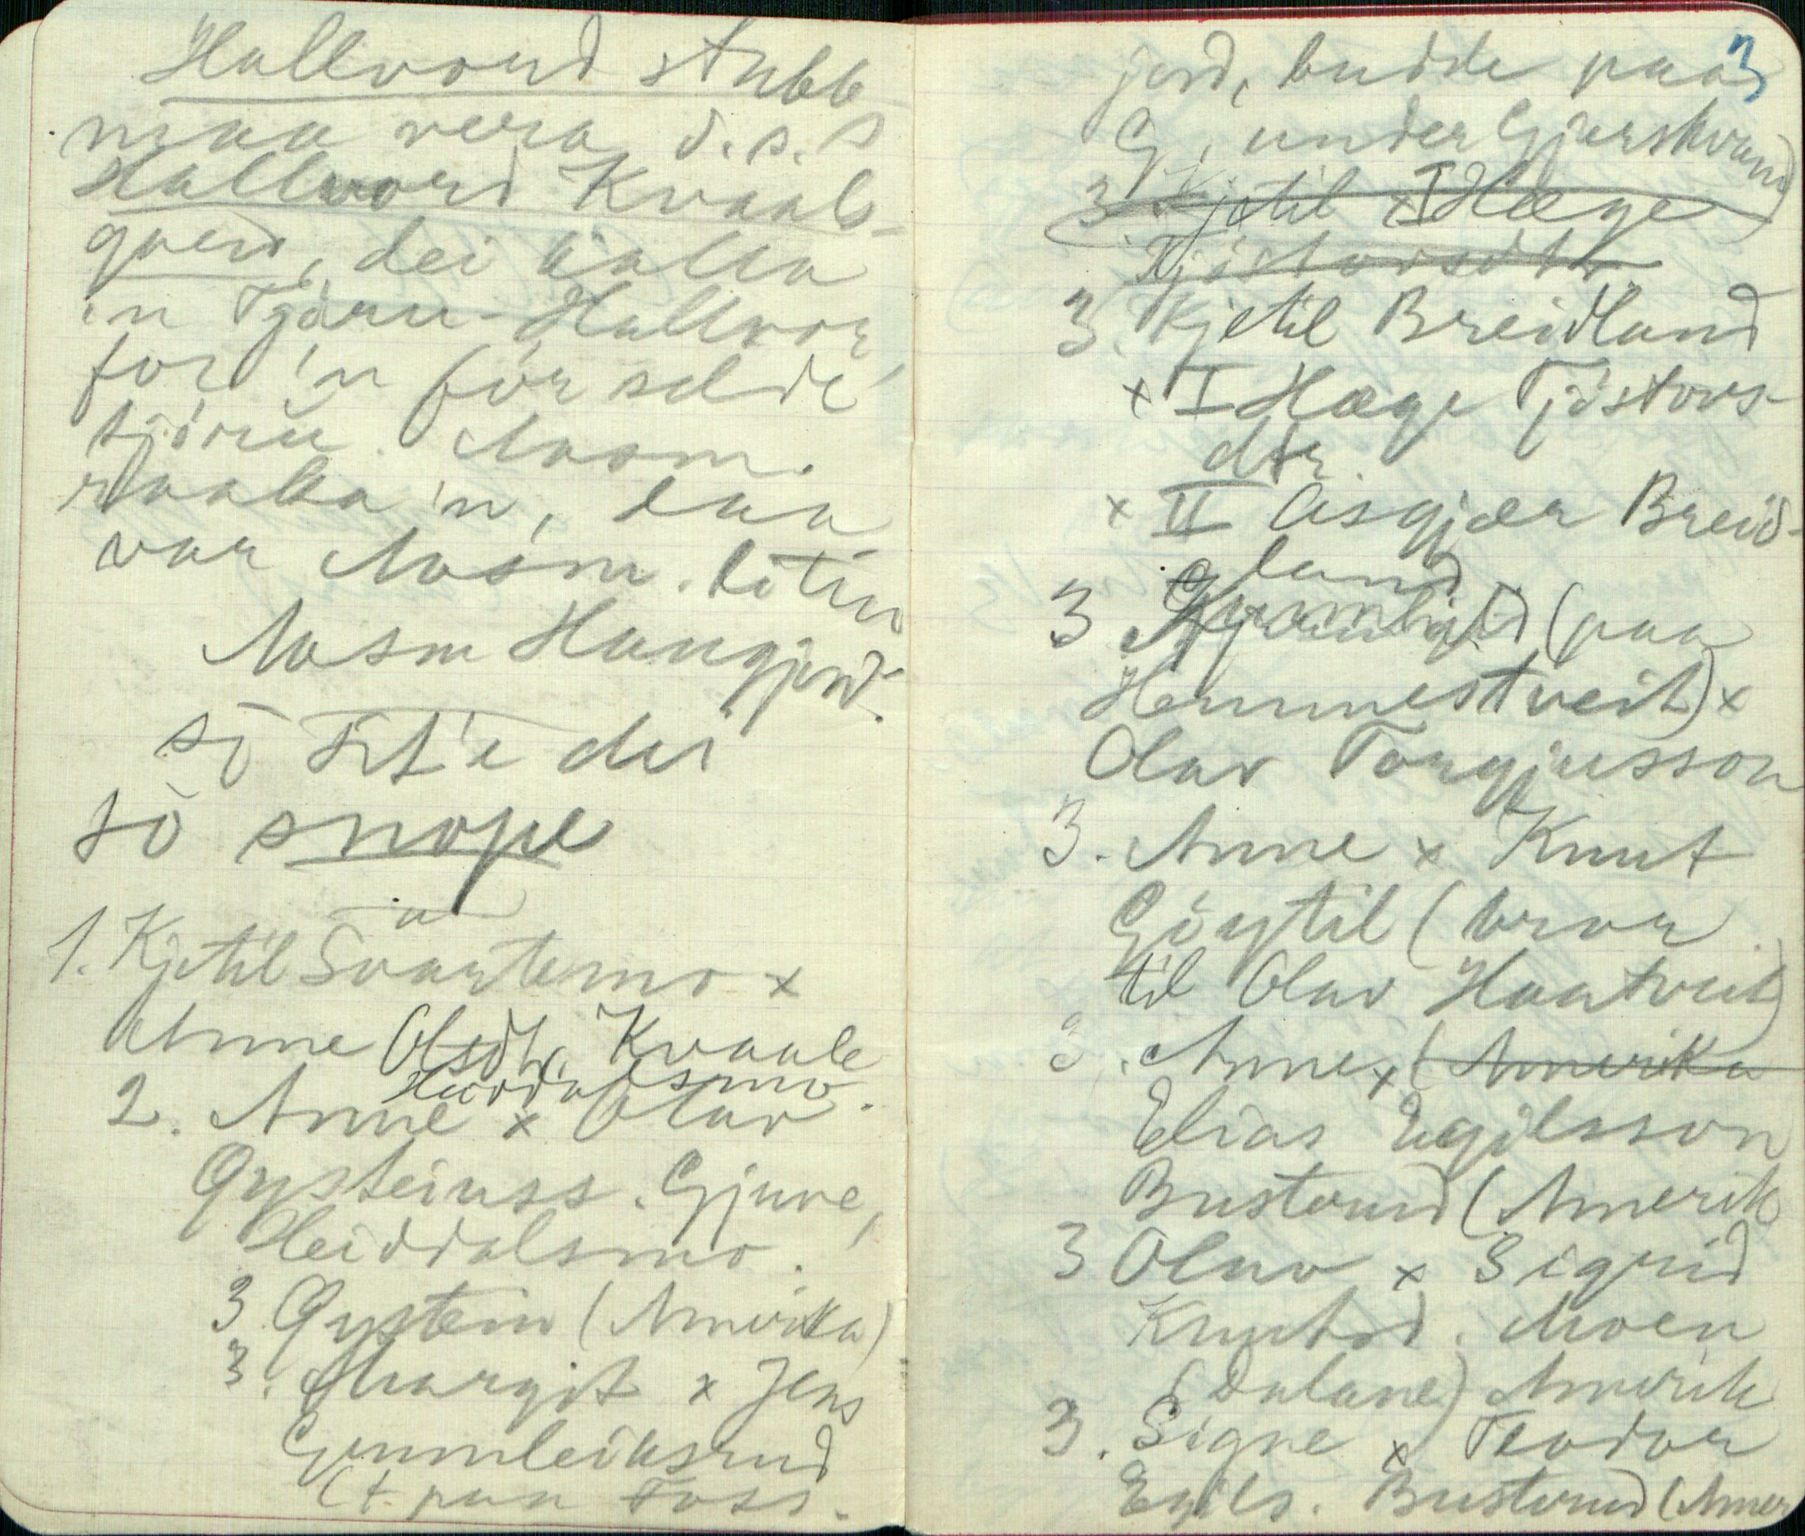 Hallvord Stubb
maa vera d.s.s
Hallvord Kvaale-
gneen, dei kalla
'n Tjøru-Hallvor,
for 'n för selde
tjöru. Aasm.
raaka 'n, daa
var Aasm. liten
Aasm Haugjord.
so tit'e dei
so snope
1. Kjetil Svartemo x
Anne Olsdtr. Kvaale
Heiddalsmo.
2. Anne x Olav
Øysteinss. Gjuve,
Heiddalsmo.
3 Øystein (Amerika)
3. Margit x Jens
Gunnleiksrud
(t. paa Foss.
3
jord, budde paa
G, under Gjuvskvamd)
3 Kjetil x I Hæge
Tjöstovsdtr.
3. Kjetil Breidland
x I Hæge Tjöstovs-
dtr
x II Aasgjær Breid-
land
3 (paa
Hemmestveit) x
Olav Torgjusson
3. Anne x Knut
Göytil (bror
til Olav Haatveit)
3. Anne x (Amerika
Elias Egilsson
Bustrund (Amerik
3 Olav x Sigrid
Knutsd. Moen
(Dalane) Amerik
3. Signe x Teodor
Egils. Bustrund (Amer